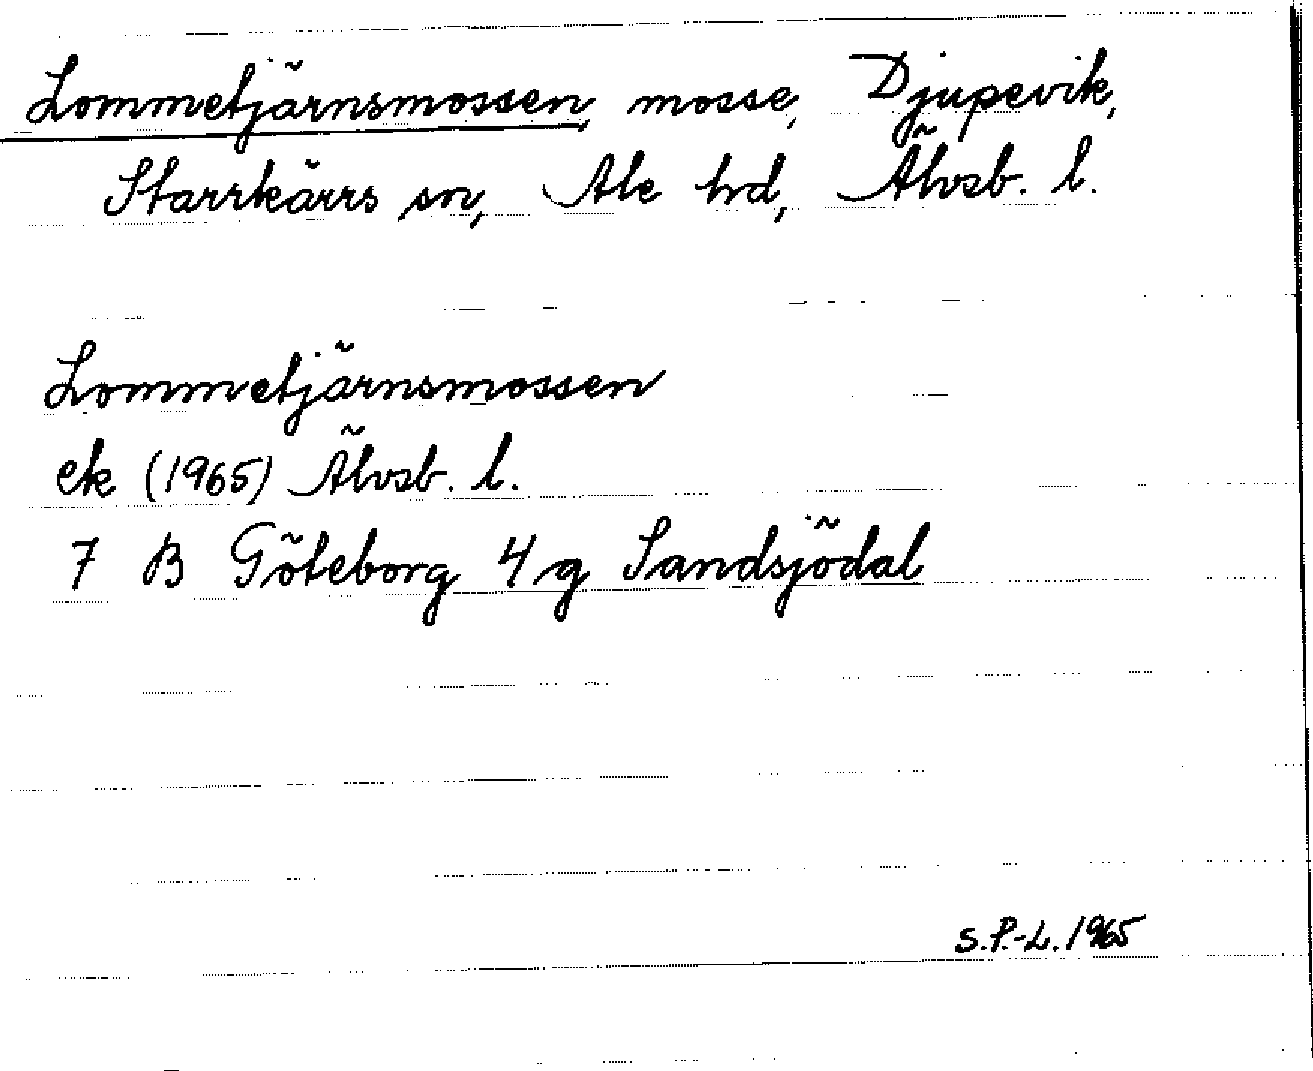 Lommetjärnsmossen, mosse, Djupevik,
Starrkärrs sn, Ale hd, Älvsb. l.
Lommetjärnsmossen
ek (1965) Älvsb. l.
7 B Göteborg 4 g Sandsjödal
S.P.-L. 1965